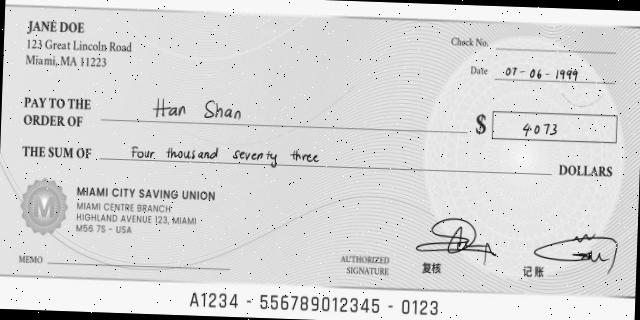 JANE DOE
123 Great Lincoln Road
Miami, MA 11223
Check No.
Date 07-06-1999
PAY TO THE
ORDER OF Han Shan
$ 4073
THE SUM OF Four thousand seventy three DOLLARS
M
MIAMI CITY SAVING UNION
MIAMI CENTRE BRANCH
HIGHLAND AVENUE 123, MIAMI
M56 7S - USA
MEMO
AUTHORIZED
SIGNATURE
复核
记账
A1234 - 556789012345 - 0123